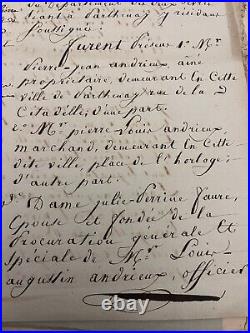 du département des deux
séant à Parthenay y résidant
soussignés
furent Présens 1.° M.r
Pierre-Jean andrieux ainé
propriétaire, demeurant en Cette
ville de Parthenay rue de la
Citadelle, d'une part.
2.° M.r pierre Louis andrieux,
marchand, demeurant en Cette
dite ville, place de l'horloge,
d'autre part.
Dame julie-Perrine Faure,
Epouse et fondée de la
procuration générale et
Spéciale de M.r Louis
augustin andrieux, officier